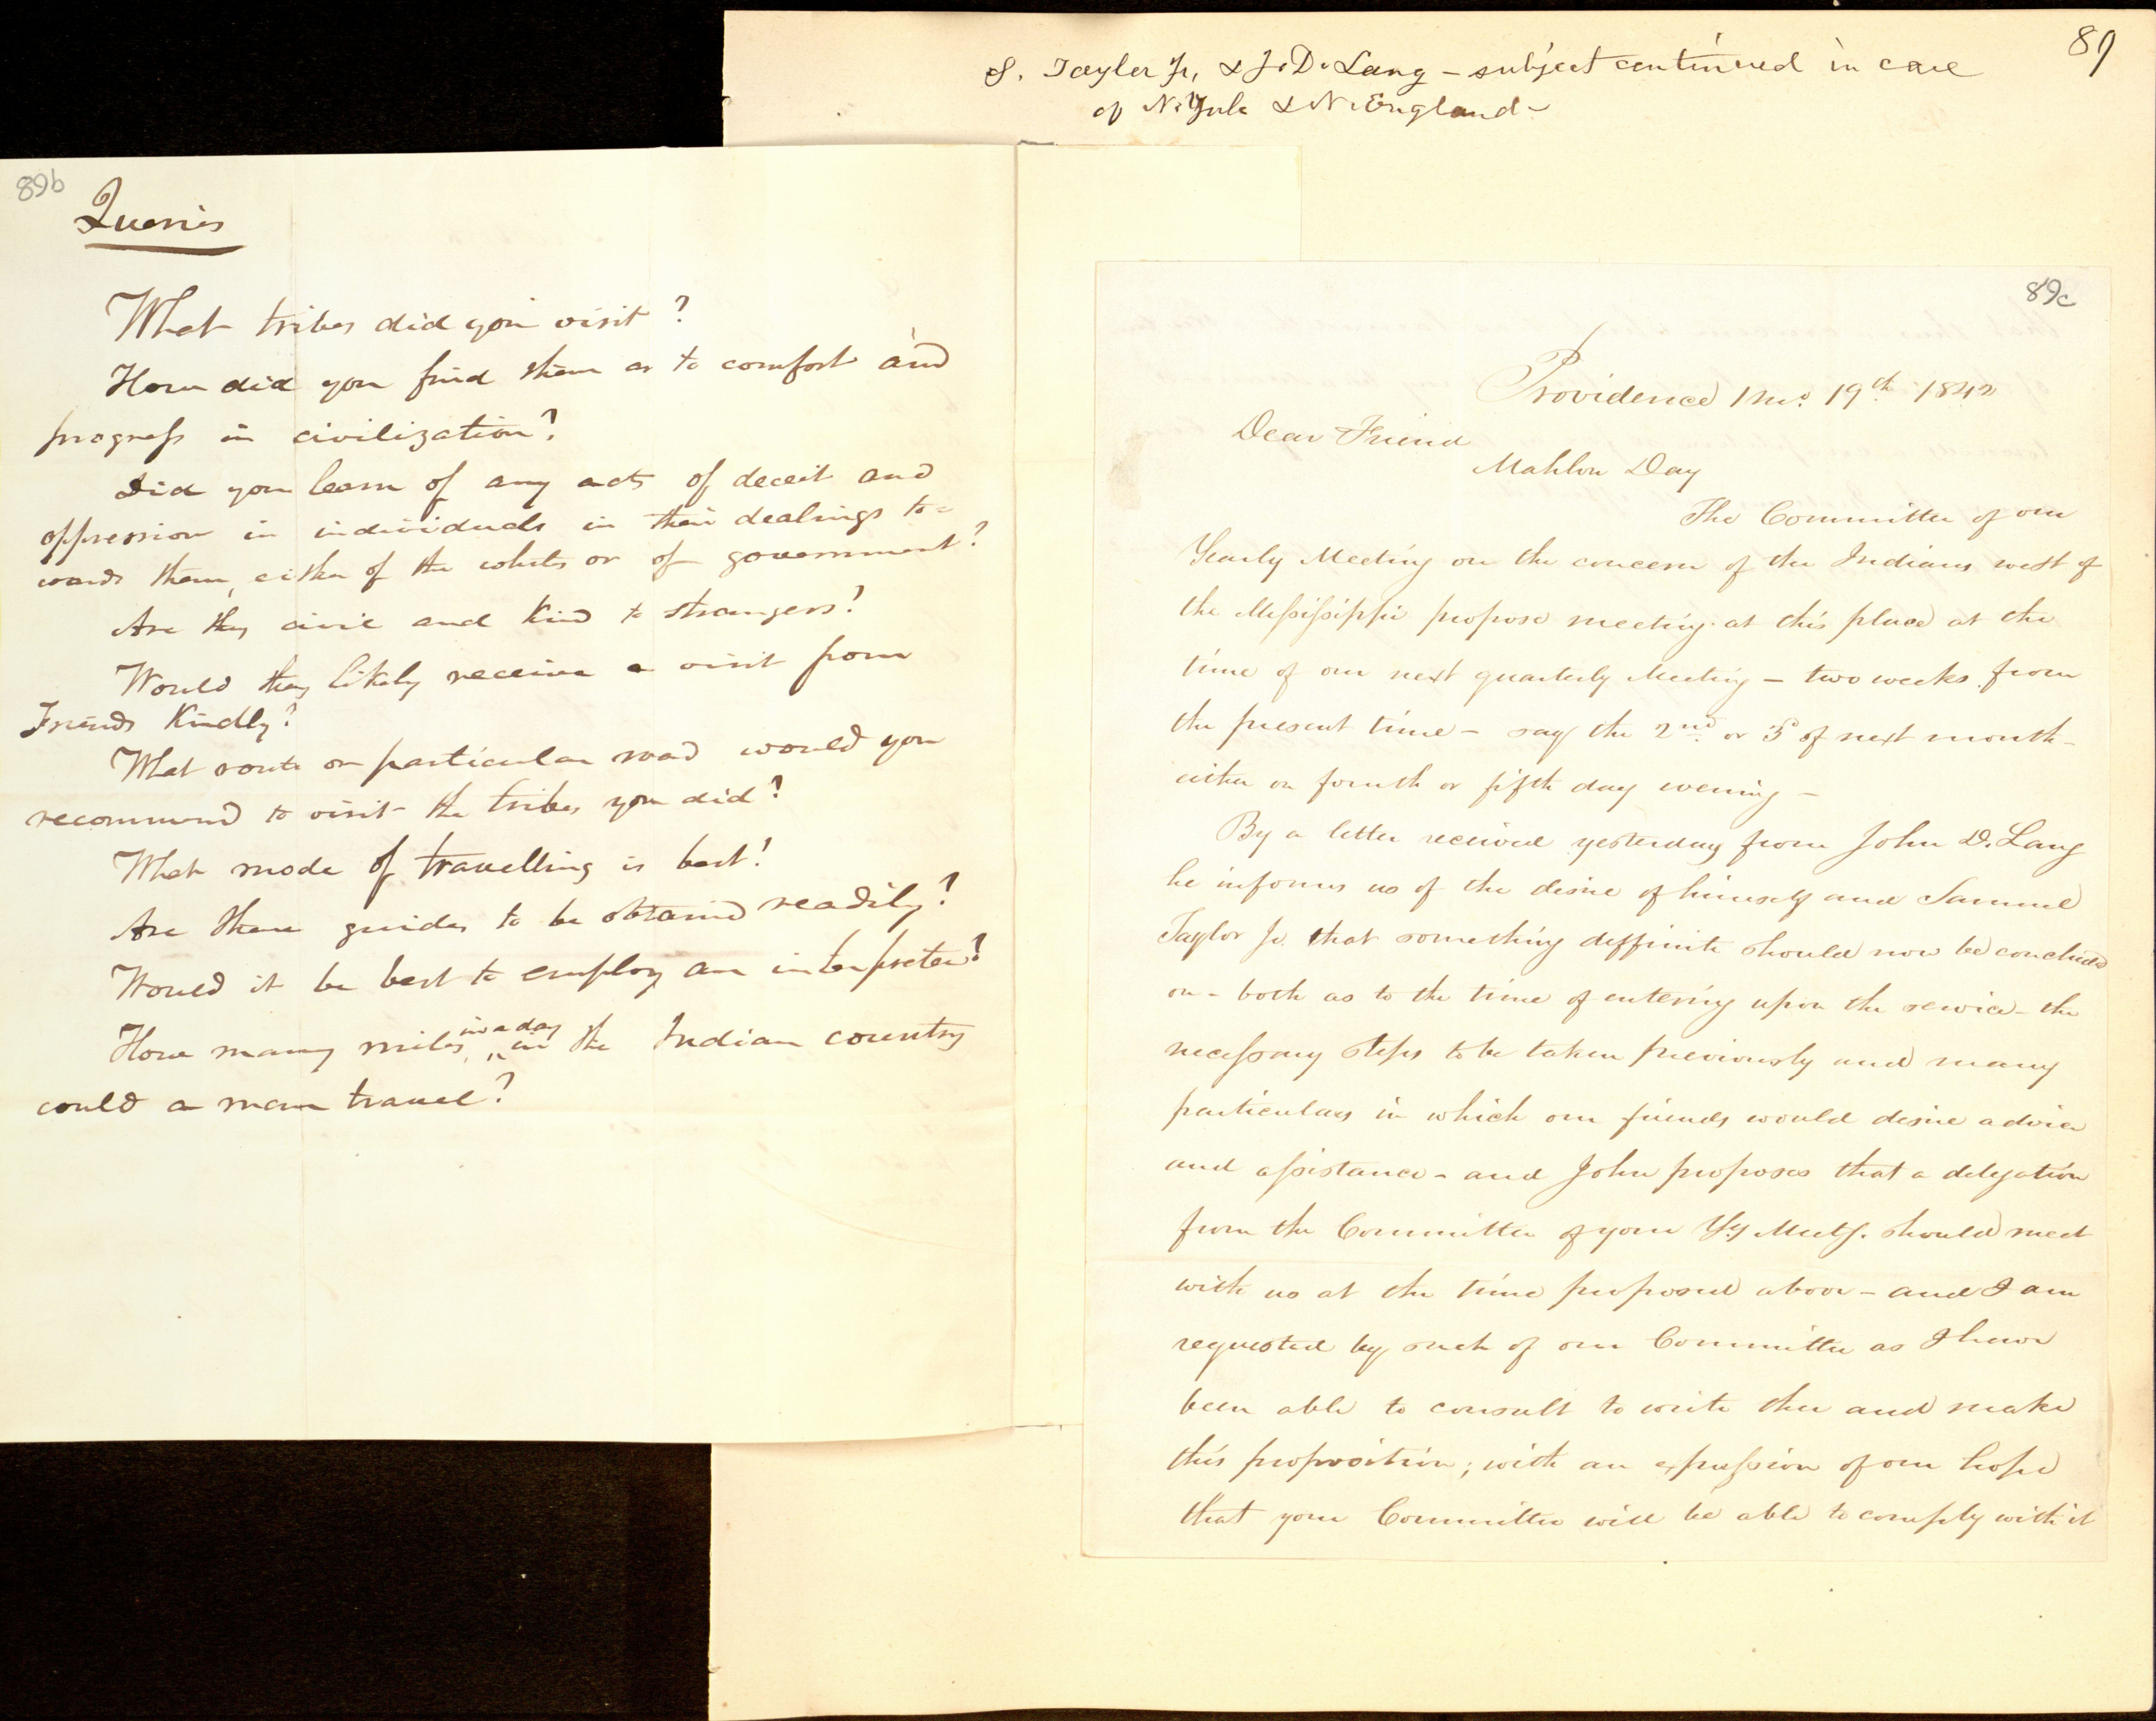 89
S. Taylor Jr, & J. D. Lang – subject continued in care
of N. York & N. England –
89b
Queries
What tribes did you visit?
How did you find them as to comfort and
progress in civilization?
Did you learn of any acts of deceit and
oppression in individuals in their dealings to=
wards them, either of the whites or of government?
Are they civil and kind to strangers?
Would they likely receive a visit from
Friends Kindly?
What route or particular road would you
recommend to visit the tribes you did?
What mode of travelling is best?
Are there guides to be obtained readily?
Would it be best to employ an interpreter?
How many miles in a day in the Indian country
could a man travel?
89c
Providence 1 Mo. 19th 1842
Dear Friend
Mahlon Day
The Committee of our
Yearly Meeting on the concern of the Indians west of
the Missisippi propose meeting at this place at the
time of our next quarterly Meeting – two weeks from
the present time – say the 2nd or 3d of next month –
either on fourth or fifth day evening –
By a letter received yesterday from John D. Lang
he informs us of the desire of himself and Samuel
Taylor Jr. that something deffinite should now be concluded
on – both as to the time of entering upon the service – the
necessary steps to be taken previously and many
particulars in which our friends would desire advice
and assistance – and John proposes that a delegation
from the Committee of your Yy Meetg. should meet
with us at the time proposed above – and I am
requested by such of our Committee as I have
been able to consult to write thee and make
this proposition; with an expression of our hope
that your Committee will be able to comply with it